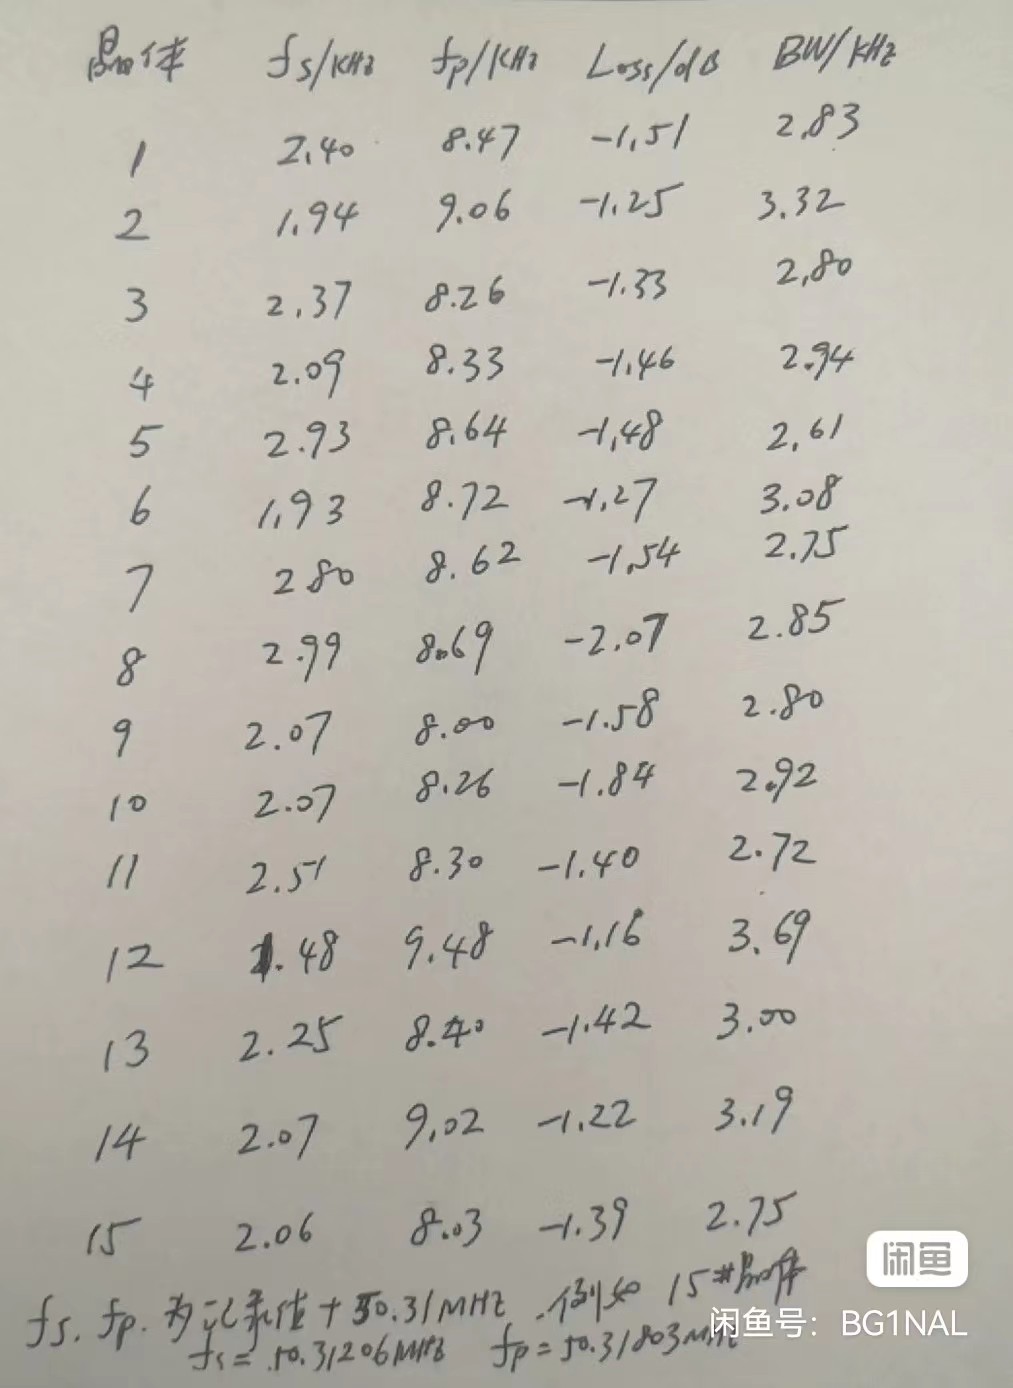 晶体 fs/KHz fp/KHz Loss/dB BW/KHz
1 2.40 8.47 -1.51 2.83
2 1.94 9.06 -1.25 3.32
3 2.37 8.26 -1.33 2.80
4 2.09 8.33 -1.46 2.94
5 2.93 8.64 -1.48 2.61
6 1.93 8.72 -1.27 3.08
7 280 8.62 -1.54 2.75
8 2.99 8.69 -2.07 2.85
9 2.07 8.00 -1.58 2.80
10 2.07 8.26 -1.84 2.92
11 2.51 8.30 -1.40 2.72
12 1.48 9.48 -1.16 3.69
13 2.25 8.40 -1.42 3.00
14 2.07 9.02 -1.22 3.19
15 2.06 8.03 -1.39 2.75
fs. fp. 为记录值+50.31MHZ. 例如 15#晶体
fs=50.31206MHz fp=50.31803MHz
闲鱼
闲鱼号：BG1NAL